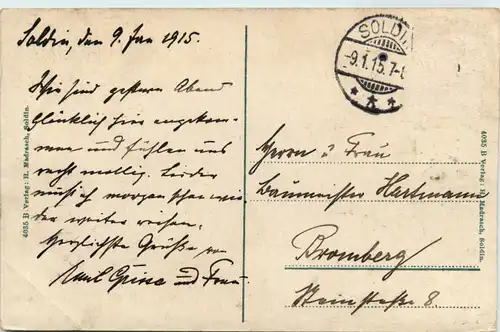 Soldin, den 9. Jan 1915.
Wir sind gestern Abend
Glücklich hier angekom-
men und fühlen uns
recht mollig. Leider
muß ich morgen schon wie
der weiter reisen.
Herzlichste Grüße von
und Frau.
SOLDIN
-9.1.15.7-
Herrn u Frau
Baumeister Hartmann
Bromberg
Steinstraße 8.
4035 B Verlag: H. Madrasch, Soldin.
4035 B Verlag: H. Madrasch, Soldin.